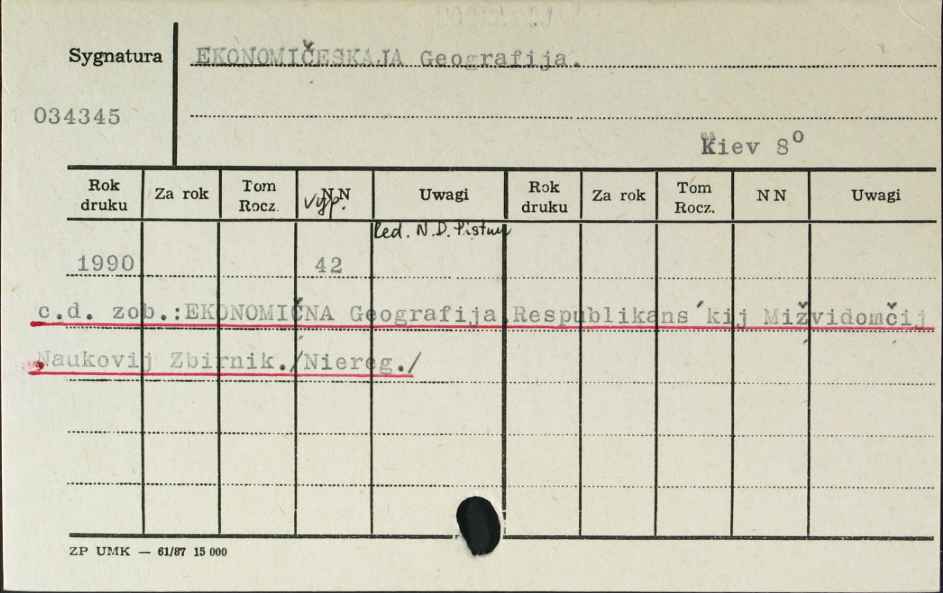 Sygnatura EKONOMIČESKAJA Geografija.
034345
Kiev 8⁰
Rok druku Za rok Tom Rocz. NN Uwagi Rok druku Za rok Tom Rocz. NN Uwagi
vyp.
N.D.
1990 42
c.d. zob.:EKONOMIČNA Geografija.Respublikans´kij Mižvidomčij
Naukovij Zbirnik./Niereg./
ZP UMK — 61/87 15 000